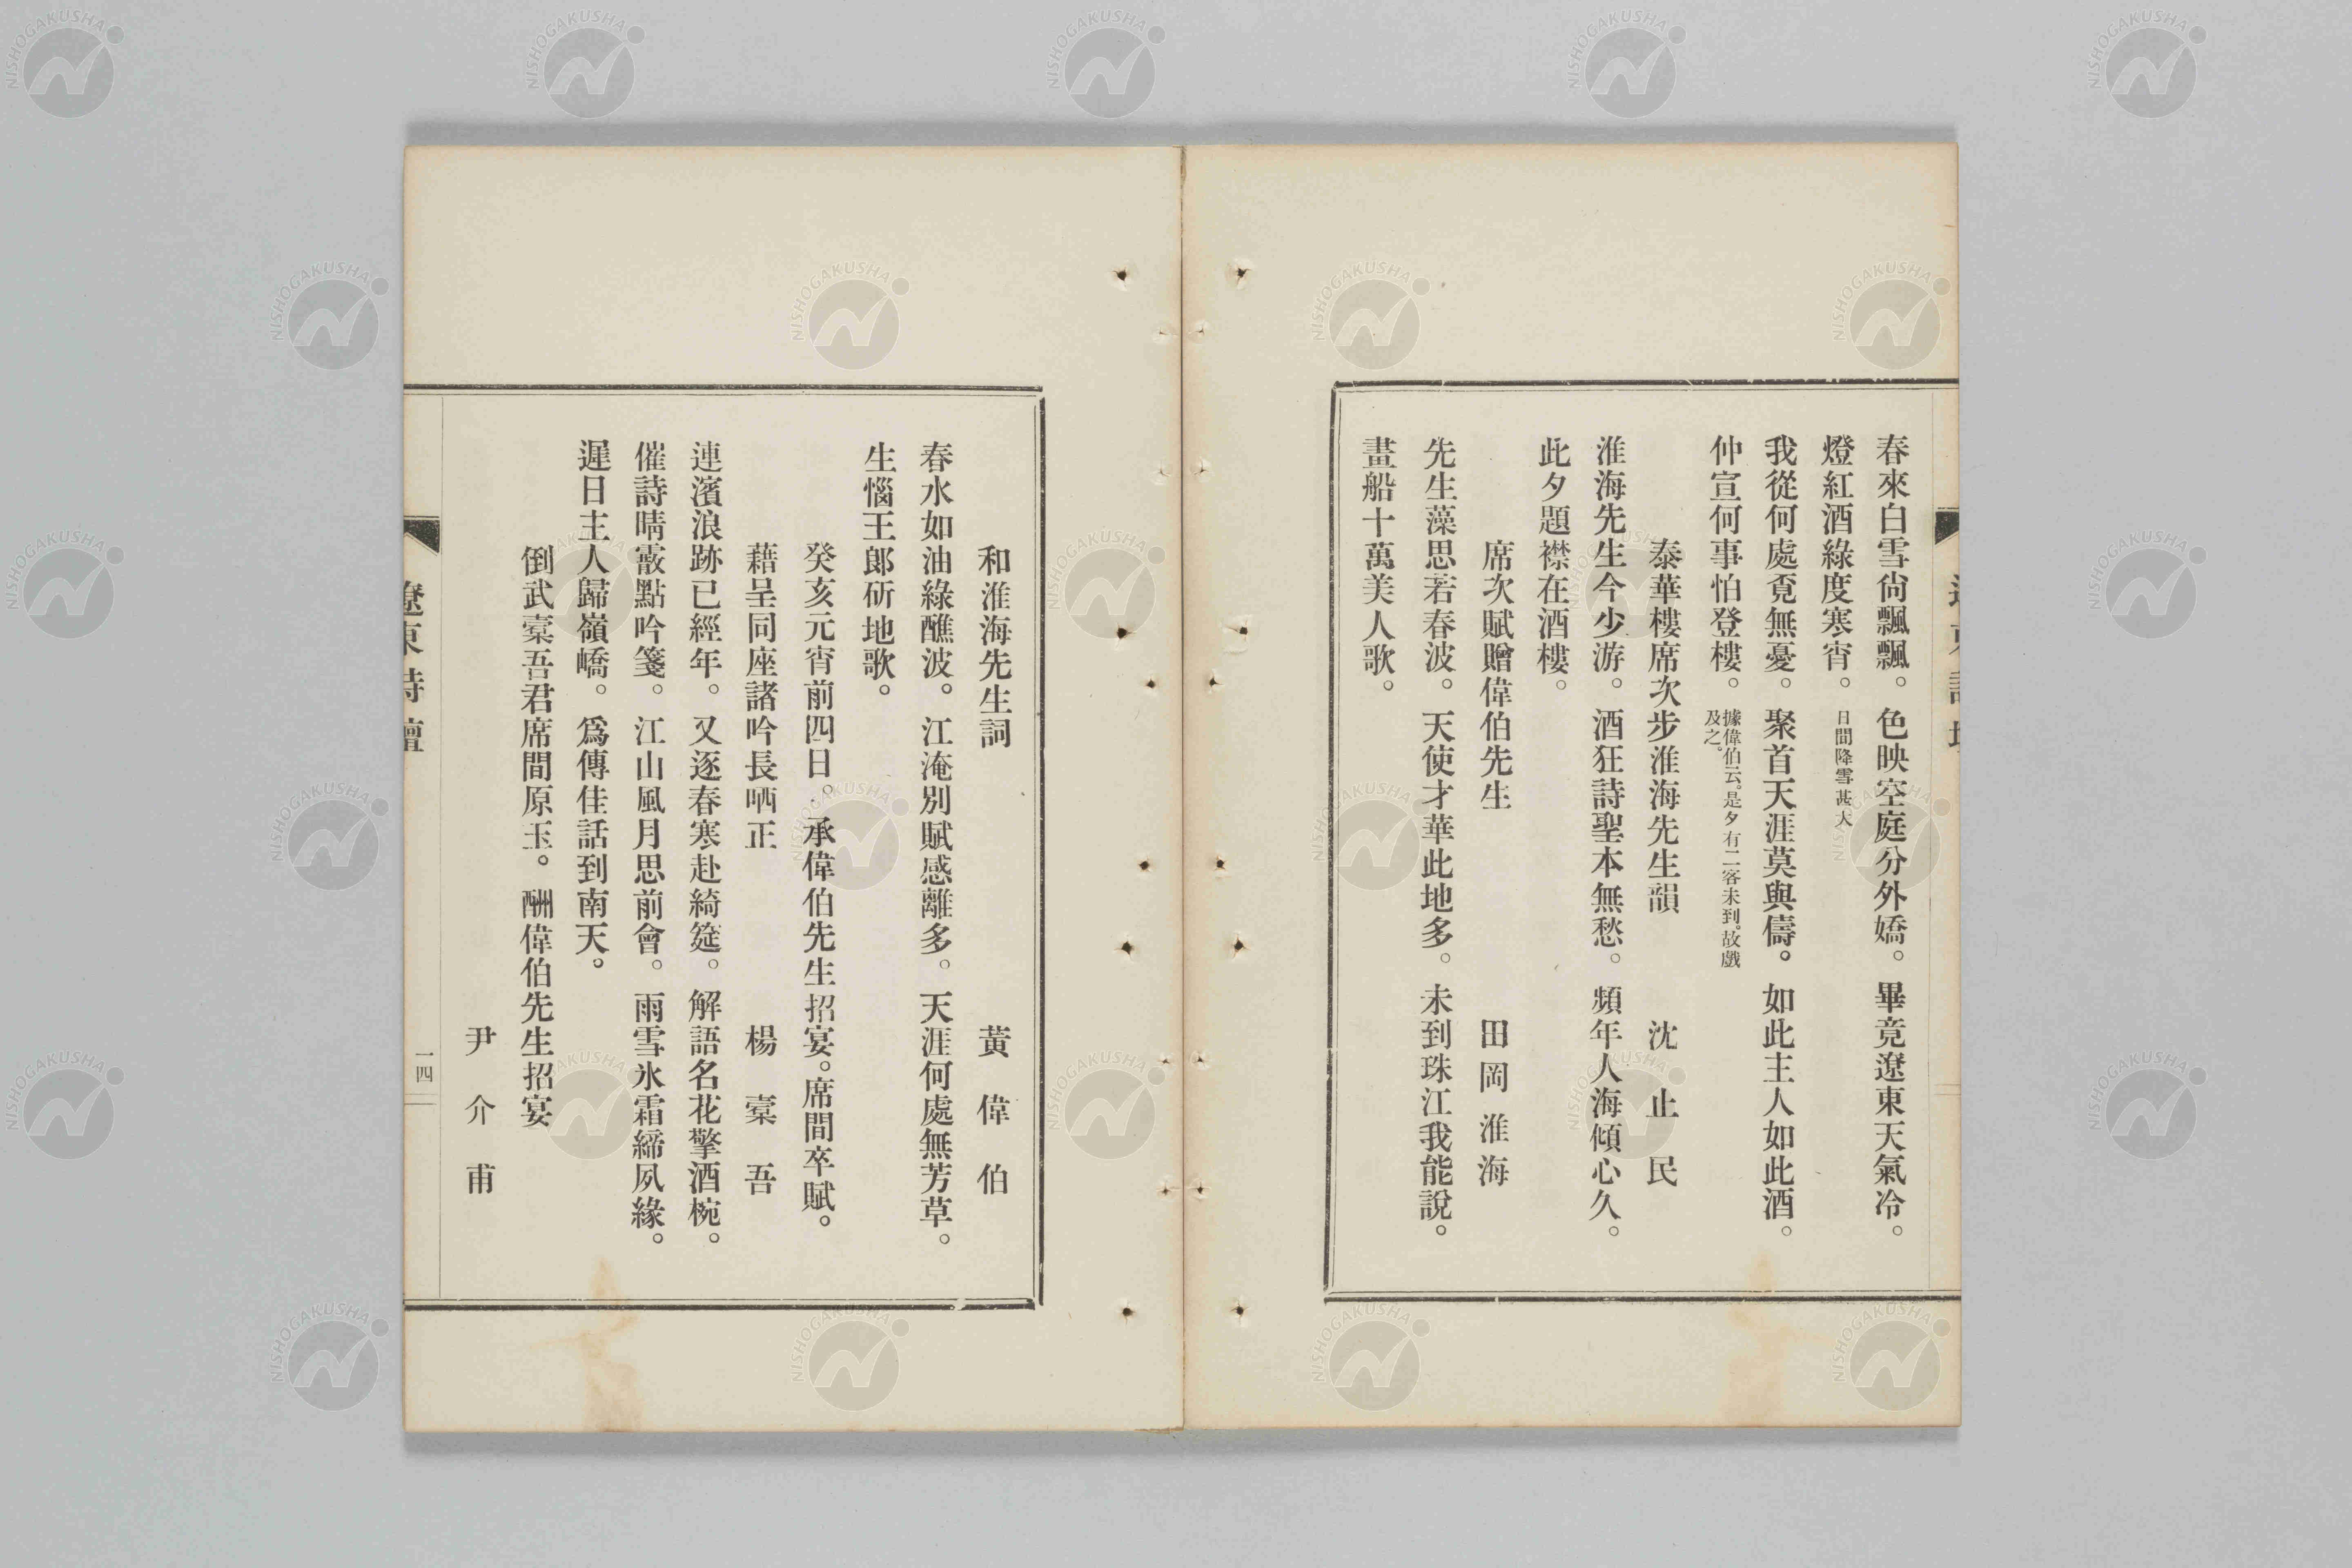 春來白雪尙飄飄。色映空庭分外嬌。畢竟遼東天氣冷。
燈紅酒綠度寒宵。日間降雪甚大
我從何處覔無憂。聚首天涯莫與儔。如此主人如此酒。
仲宣何事怕登樓。據偉伯云。是夕有二客未到。故戲
及之。
泰華樓席次步淮海先生韻 沈止民
淮海先生今少游。酒狂詩聖本無愁。頻年人海傾心久。
此夕題襟在酒樓。
席次賦贈偉伯先生 田岡淮海
先生藻思若春波。天使才華此地多。未到珠江我能說。
畫船十萬美人歌。
和淮海先生詞 黃偉伯
春水如油綠醮波。江淹別賦感離多。天涯何處無芳草。
生惱王郞斫地歌。
癸亥元宵前四日。承偉伯先生招宴。席間卒賦。
藉呈同座諸吟長哂正 楊槖吾
連濱浪跡已經年。又逐春寒赴綺筵。解語名花擎酒椀。
催詩晴霰點吟箋。江山風月思前會。雨雪氷霜締夙緣。
遲日主人歸嶺嶠。爲傳佳話到南天。
倒武槖吾君席間原玉。酬偉伯先生招宴
尹介甫
遼東詩壇
一四
NISHOGAKUSHA